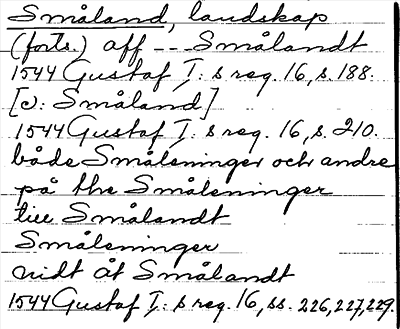 Småland, landskap
(forts.) aff --- Smålandt
1544 Gustaf I: s reg. 16, s. 188.
[ɔ: Småland]
1544 Gustaf I: s reg. 16, s. 210.
både Småleninger och andre
på the Småleninger
till Smålandt
Småleninger
nidt åt Smålandt
1544 Gustaf I: s reg. 16, ss. 226, 227, 229.